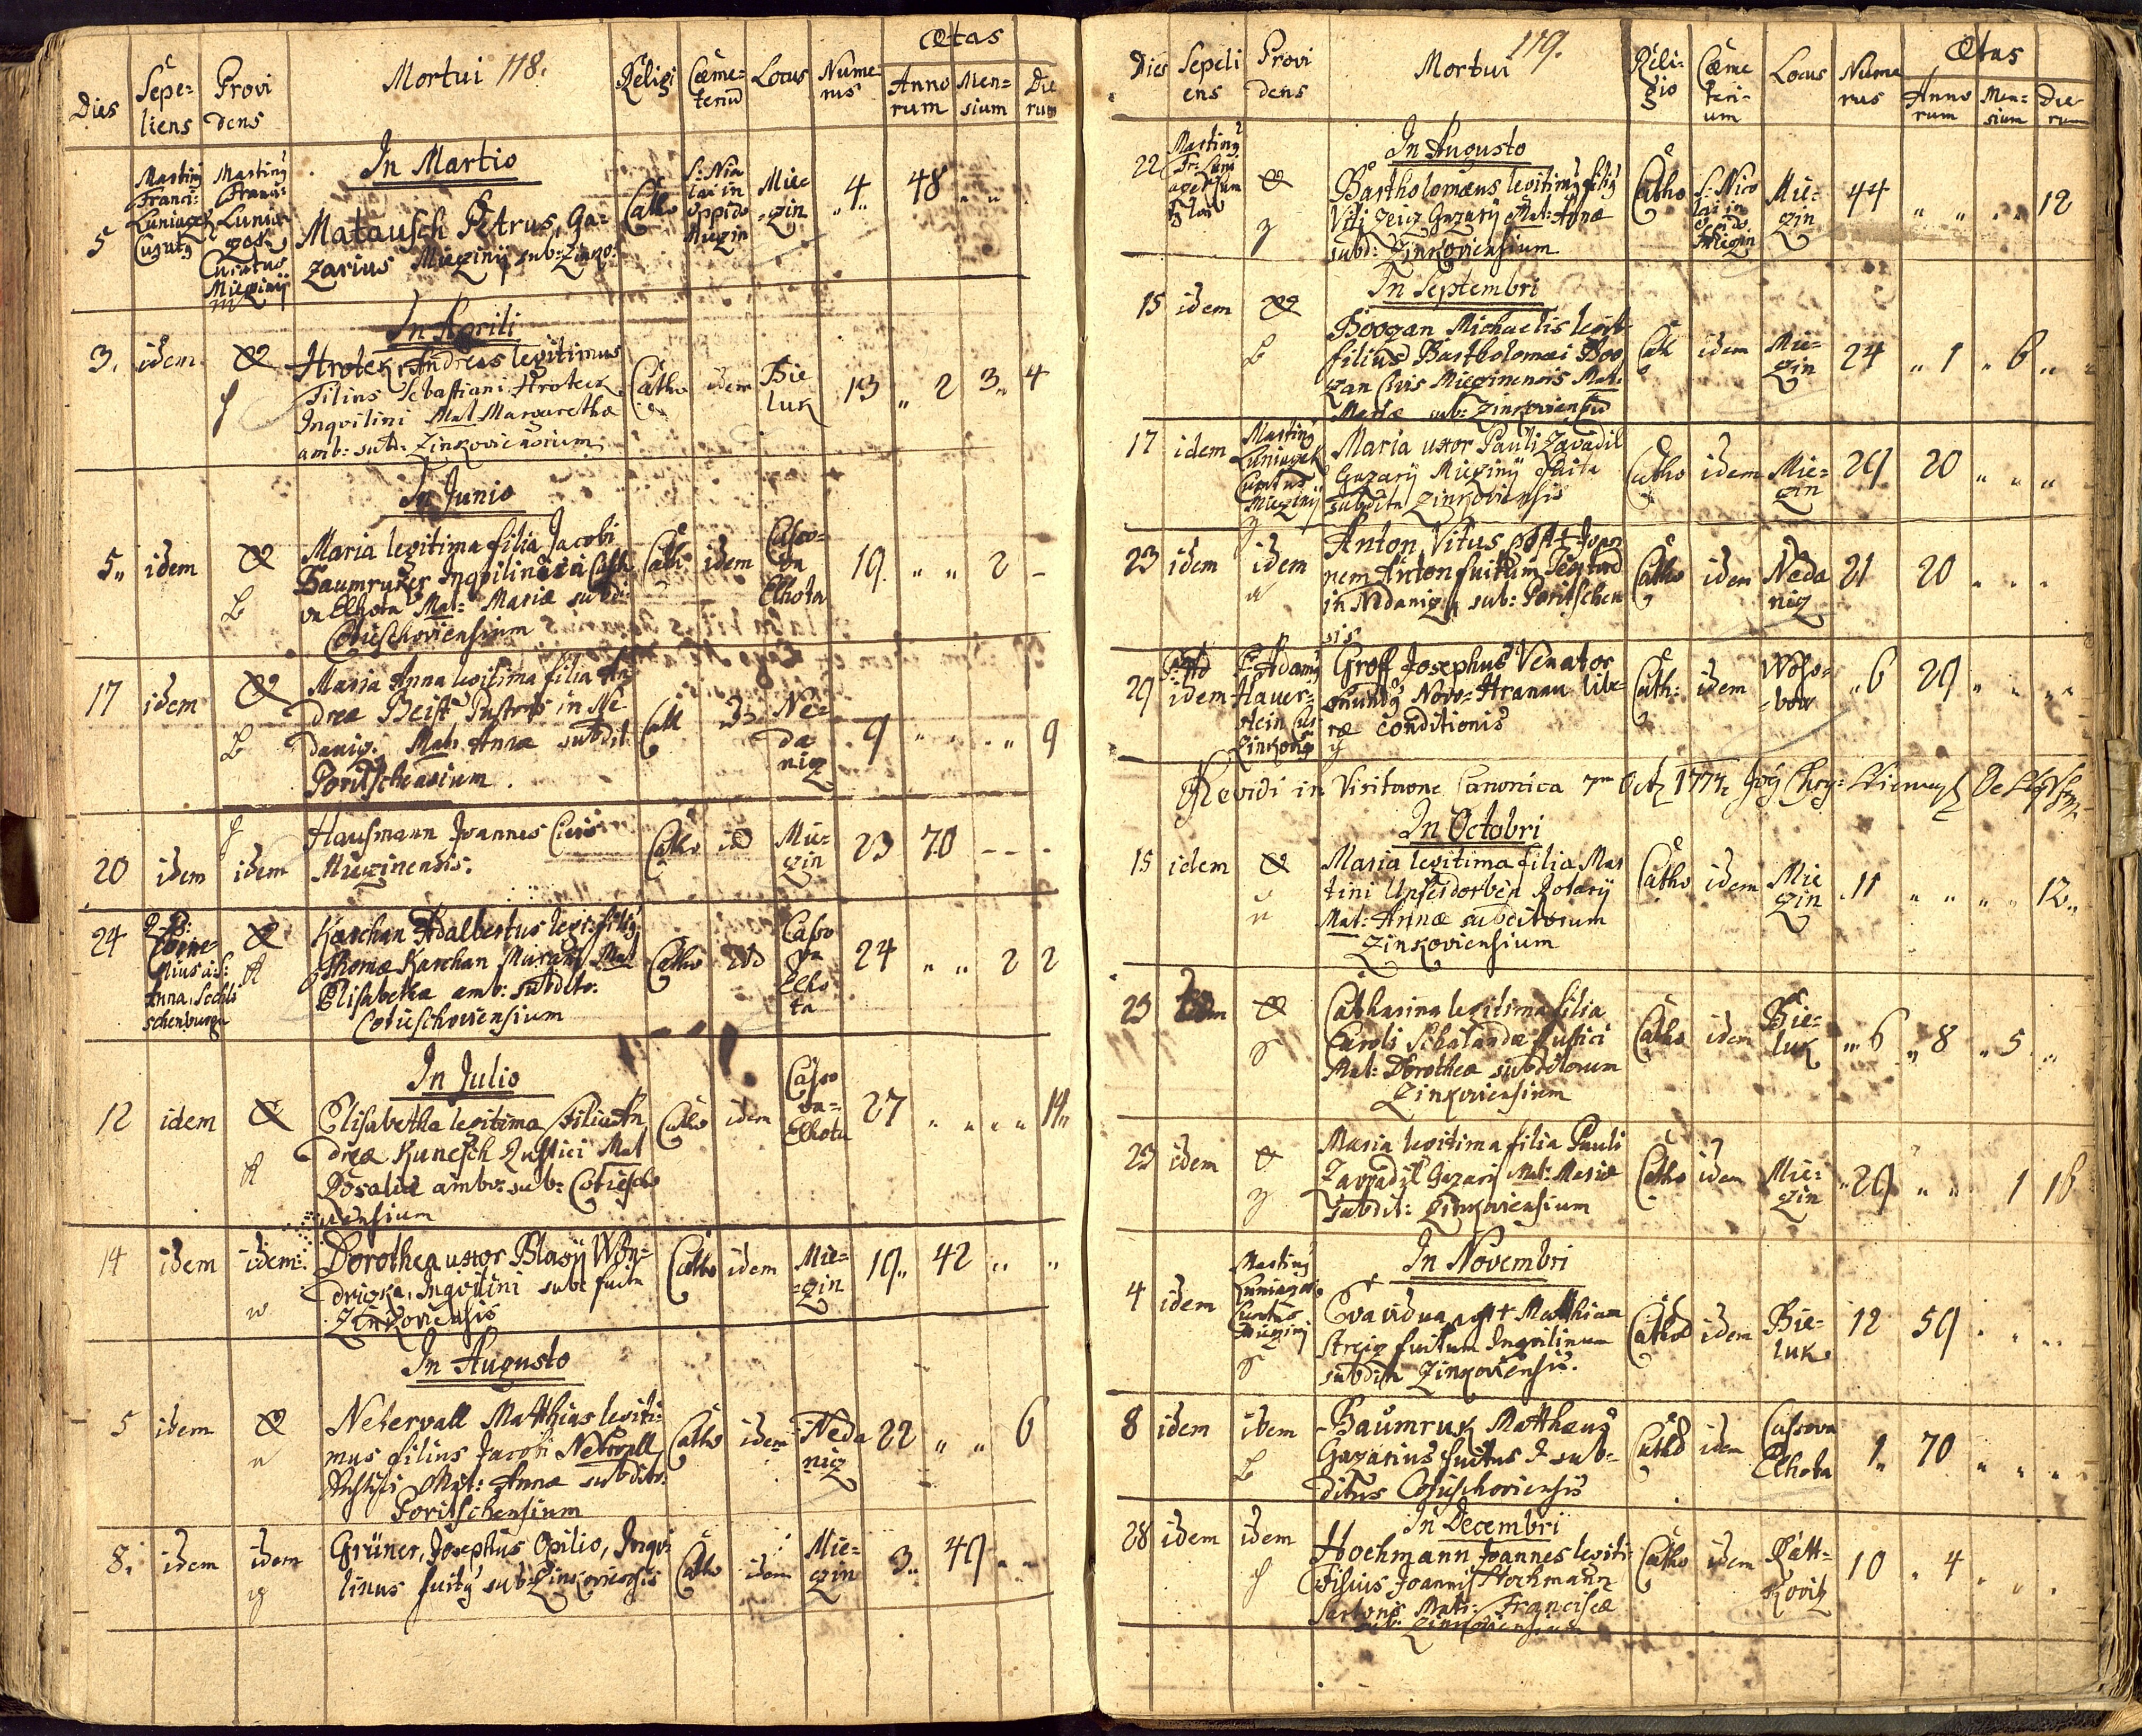 Dies
Sepe=
liens
Provi
dens
Mortui 118.
Religi
Cœme=
teriu
Locus
Nume
rus
Ætas
Anno
rum
Men=
sium
Die
rum
In Martio
5
Martiny
Franci:
Luniaczek
Martiny
Franci:
Curatus
Mieziny
Matausch Petrus, Ga=
zarius Mieziny sub: Zinko:
Catho
S: Nic
lai in
oppido
Miezin
Mie=
=zin
4 48
In Aprili
3. idem
Hrotek, Andreas legitimus
Filius Sebastiani Hroteck
Inqvilini Mat Margarethæ
amb: sub: Zinkoviensium
Catho idem Bie
luk
13 2 3 4
In Junio
5 idem
Maria legitima filia Jacobi
Baumruker Inqvilini
va Elhota Mat: Mariæ subd:
Cotieschoviensium
Cath idem Casso=
va
Elhota
19 2 -
17 idem
Maria Anna legitima filia An
dreæ Beist Pastoris in Ne
daniz. Mat: Annæ subdit
Poritschensium.
Cath Ne=
da
niz
9 9
20 idem idem
Hausmann Joannes Civis
Miezinensis.
Catho id Mie=
zin
23 70 - - -
24
Anna, Sedli
schenburgn
Karchan Adalbertus legi: filiy
Thomæ Karchan Murarii Mat
Elisabetha amb: subdito:
Cotieschoviensium
Catho Casso
va
Elho
ta
24 2 2
In Julio
12 idem
Elisabetha legitima Filia An
dreæ Kunesch Rustici Mat
Rosaliæ ambo: sub: Cotiescho
viensium
Catho idem Casso
va=
Elhota
27 14
14 idem idem
Dorothea uxor Blasij Won=
driczka, Inqvilini sub: fuita
Zinkoviensis
Catho idem Mie=
=zin
19 42
In Augusto
5 idem
Netervall Matthias legiti=
mus filius Jacobi Netrvall
Rustici Mat: Annæ subdito:
Poritschensium
Catho idem Neda
niz
22 6
8. idem idem
Grüner, Josephus Opilio, Inqvi=
linus fuity sub: Zinkoviensis
Catho idem Mie=
zin
3 49
Dies
Sepeli
ens
Provi
dens
Mortui 119.
Reli=
gio
Cœme
teri=
um
Locus
Nume
rus
Ætas
Anno
rum
Men=
sium
Die
rum
In Augusto
22 Martiny
Bartholomæus legitimy filiy
Viti Zenz Gazarij Mat: Annæ
subd: Zinkoviensium
Catho
S: Nico
lai in
oppido
Miezin
Mie=
zin
44 12
In Septembri
15 idem
Boozan Michaelis legit
filius Bartholomæi Boo
zan Civis Miezinensis Mat:
Mariæ sub: Zinkoviensiu
Cath idem Mie=
zin
24 1 6
17 idem Martiny
Luniaczek
Curatus
Mieziny
Maria uxor Pauli Zavadil
Gazarij Miezinij fuita
subdita Zinkoviensis
Catho idem Mie=
zin
29 20
23 idem idem
Anton, Vitus post Joan
nem Anton fuitum
in Nedaniz sub: Poritschen
sis
Catho idem Neda
niz
21 20
29 idem P: Adamy
Hauer=
stein
Zinkovy
Groff Josephus Venator
oriundy Novo= Hranau libe=
ræ conditionis
Cath: idem Woso=
=bow
6 29
Revidi in Visitaone Canonica 7ma Oct. 1774
In Octobri
15 idem
Maria legitima filia Mar
tini Unseidorben Rotarij
Mat: Annæ subditorum
Zinkoviensium
Catho idem Mie
zin
11 12
23 idem
Catharina legitima filia
Caroli Schalandæ Rustici
Mat: Dorotheæ subditorum
Zinkoviensium
Catho idem Bie=
luk
6 8 5
23 idem
Maria legitima filia Pauli
Zavadil Gazarij Mat: Mariæ
subdit: Zinkoviensium
Catho idem Mie=
zin
29 1 16
In Novembri
4 idem Martiny
Luniaczek
Curatus
Mieziny
Eva vidua post Matthiam
Streiz fuitum Inqvilinum
subdita Zinkoviensis.
Cathol idem Bie=
luk
12 59
8 idem idem
Baumruk Matthæuy
Gazarius fuitus & sub=
ditus Cotieschoviensis
Cathol idem Cassova
Elhota
1 70
In Decembri
28 idem idem
Hochmann Joannes legiti
Filius Joannis Hochmann
Sartoris Mat: Franciscæ
sub: Zinkoviensium
Catho idem Ratt=
kovitz
10 4